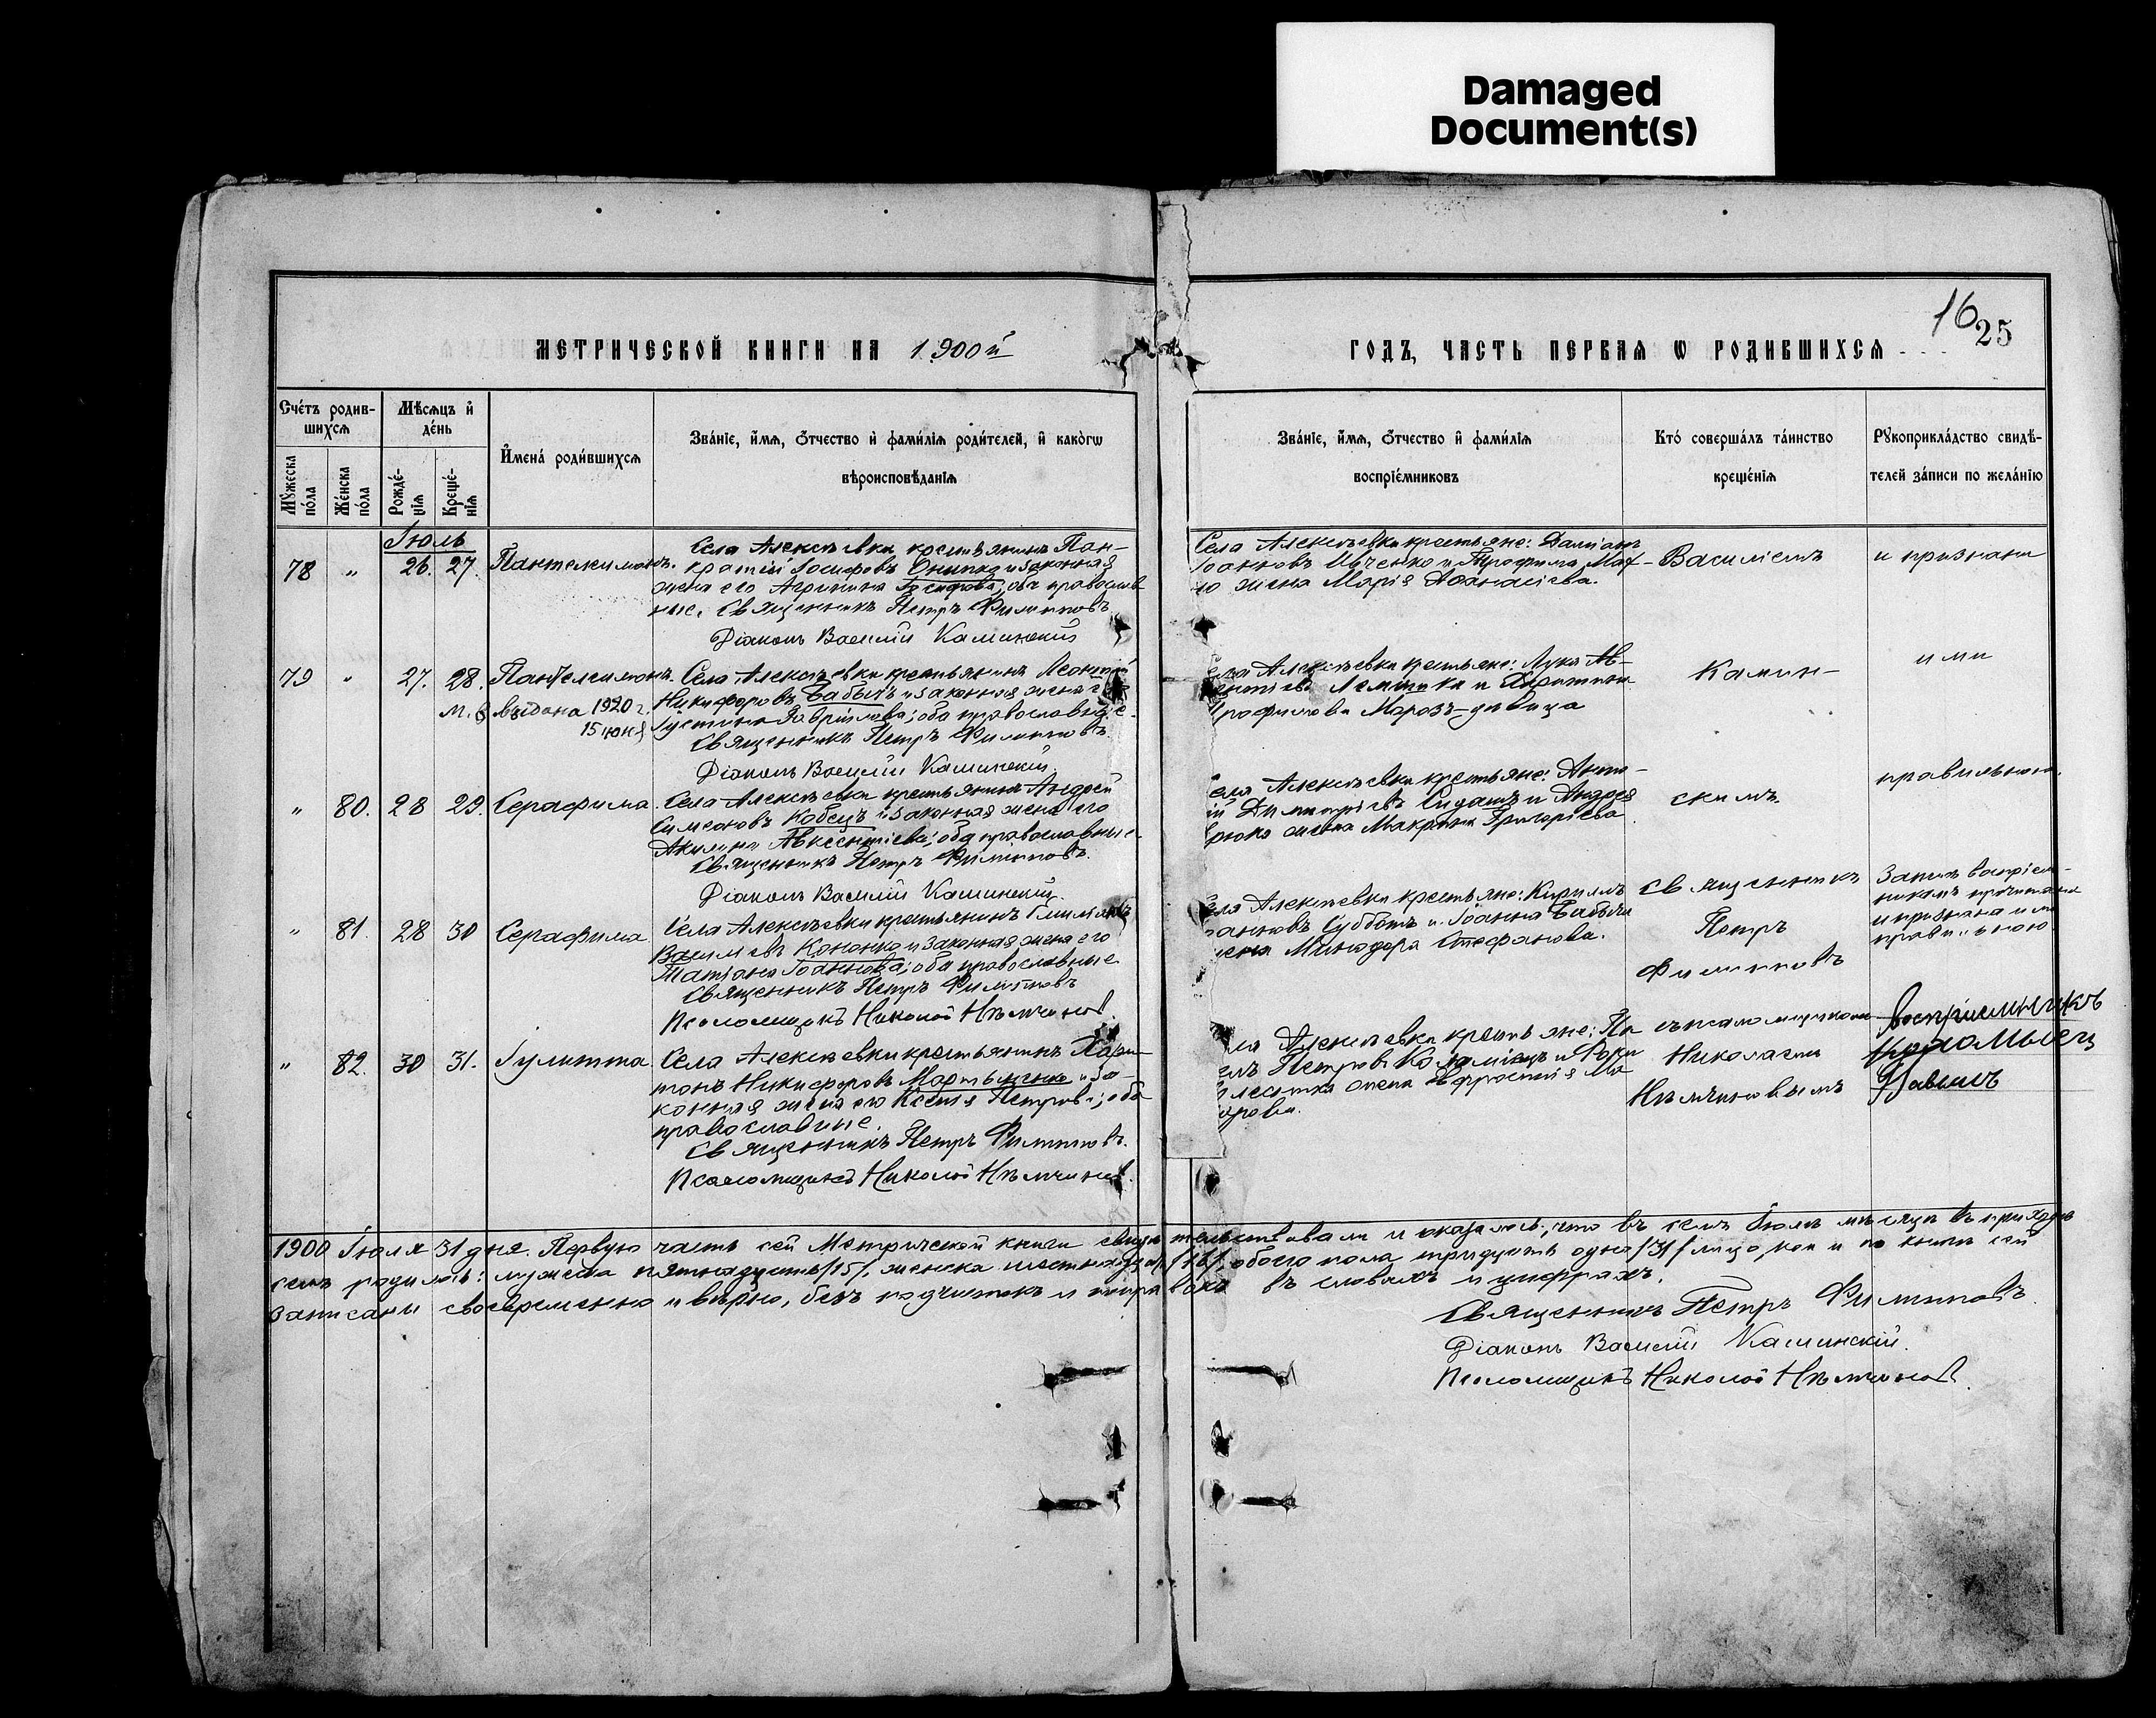 Damaged
Document(s)
16 25
МЕТРИЧЕСКОЙ КНИГИ НА 1900й ГОДЪ, ЧАСТЬ ПЕРВАЯ Ѡ РОДИВШИХСЯ
Сче́тъ родив-
шихсѧ
Мѣсѧцъ и҆
де́нь
Мꙋ́жеска
по́ла
Же́нска
по́ла
Рожде́-
нїѧ
Креще́-
нїѧ
И҆мена́ роди́вшихсѧ
Зва́нїе, и҆́мѧ, ѻ҆́тчество и҆ фами́лїѧ роди́телей, и҆ како́гѡ
вѣроисповѣ́данїѧ
Зва́нїе, и҆́мѧ, ѻ҆́тчество и҆ фами́лїѧ
воспрїе́мниковъ
Кто́ соверша́лъ та́инство
креще́нїѧ
Рꙋкоприкла́дство свидѣ́-
телей за́писи по жела́нїю
Іюль
78 „ 26. 27. Пантелеимонъ.
Села Алексѣевки крестьянинъ Пан-
кратій Іосифовъ Онипко и законная
жена его Агрипина Іосифова, оба православ
ные. Священникъ Петръ Филипповъ
Діаконъ Василій Калинскій
Села Алексѣевки крестьяне: Даміанъ
Іоанновъ Ивченко и Трофима Мах-
но жена Марія Аѳанасіева.
Василіемъ
и признана
79 „ 27. 28. Пантелеимонъ.
М. в выдана 1920 г.
15 іюня
Села Алексѣевки крестьянинъ Леонтій
Никифоровъ Бабычъ и законная жена его
Іустина Гавріилова; оба православные.
Священникъ Петръ Филипповъ.
Діаконъ Василій Калинскій.
Села Алексѣевки крестьяне: Лука Ав-
Трофимова Морозъ-дѣвица
Калин-
ими
„ 80. 28 29. Серафима.
Села Алексѣевки крестьянинъ Андрей
Симеоновъ Кобецъ и законная жена его
Акилина Авксентіева; оба православные.
Священникъ Петръ Филипповъ.
Діаконъ Василій Калинскій.
ела Алексѣевки крестьяне: Анто-
ій Димитріевъ Сидашъ и Андрея
жена Макрина Григоріева.
скимъ.
правильною.
„ 81. 28 30 Серафима
Села Алексѣевки крестьянинъ Климентъ
Василіевъ Кононко и законная жена его
Татіана Іоаннова; оба православные
Священникъ Петръ Филипповъ
Псаломщикъ Николай Нѣмчиновъ.
ела Алексѣевки крестьяне: Кириллъ
оанновъ Суббота и Іоанна Бабыча
жена Минодора Стефанова.
Священникъ
Петръ
Филипповъ
Запись воспріем-
никамъ прочитана
и признана ими
правильною.
„ 82. 30 31. Іулитта
Села Алексѣевки крестьянинъ Хари-
тонъ Никифоровъ Мартыненко и за-
конная жена его Ксенія Петрова; оба
православные.
Священникъ Петръ Филипповъ.
Псаломщикъ Николай Нѣмчиновъ.
ела Алексѣевки крестьяне: Па
елъ Петровъ Коломіецъ и
жена Евфросинія Ѳе
орова.
съ псаломщикомъ
Николаемъ
Нѣмчиновымъ
воспріемникъ
Коломыецъ
Павелъ
1900 Іюля 31 дня. Первую часть сей Метрической книги свидѣтельствовали и оказалось, что въ семъ Іюлѣ мѣсяцѣ въ приходѣ
семъ родилось: мужеска пятнадцать /15/, женска шестнадцать /16/, обоего пола тридцать одно /31/ лицо, кои и по книгѣ сей
записаны своевременно и вѣрно, безъ подчистокъ и поправокъ въ словахъ и цифрахъ.
Священникъ Петръ Филипповъ.
Діаконъ Василій Калинскій.
Псаломщикъ Николай Нѣмчиновъ.